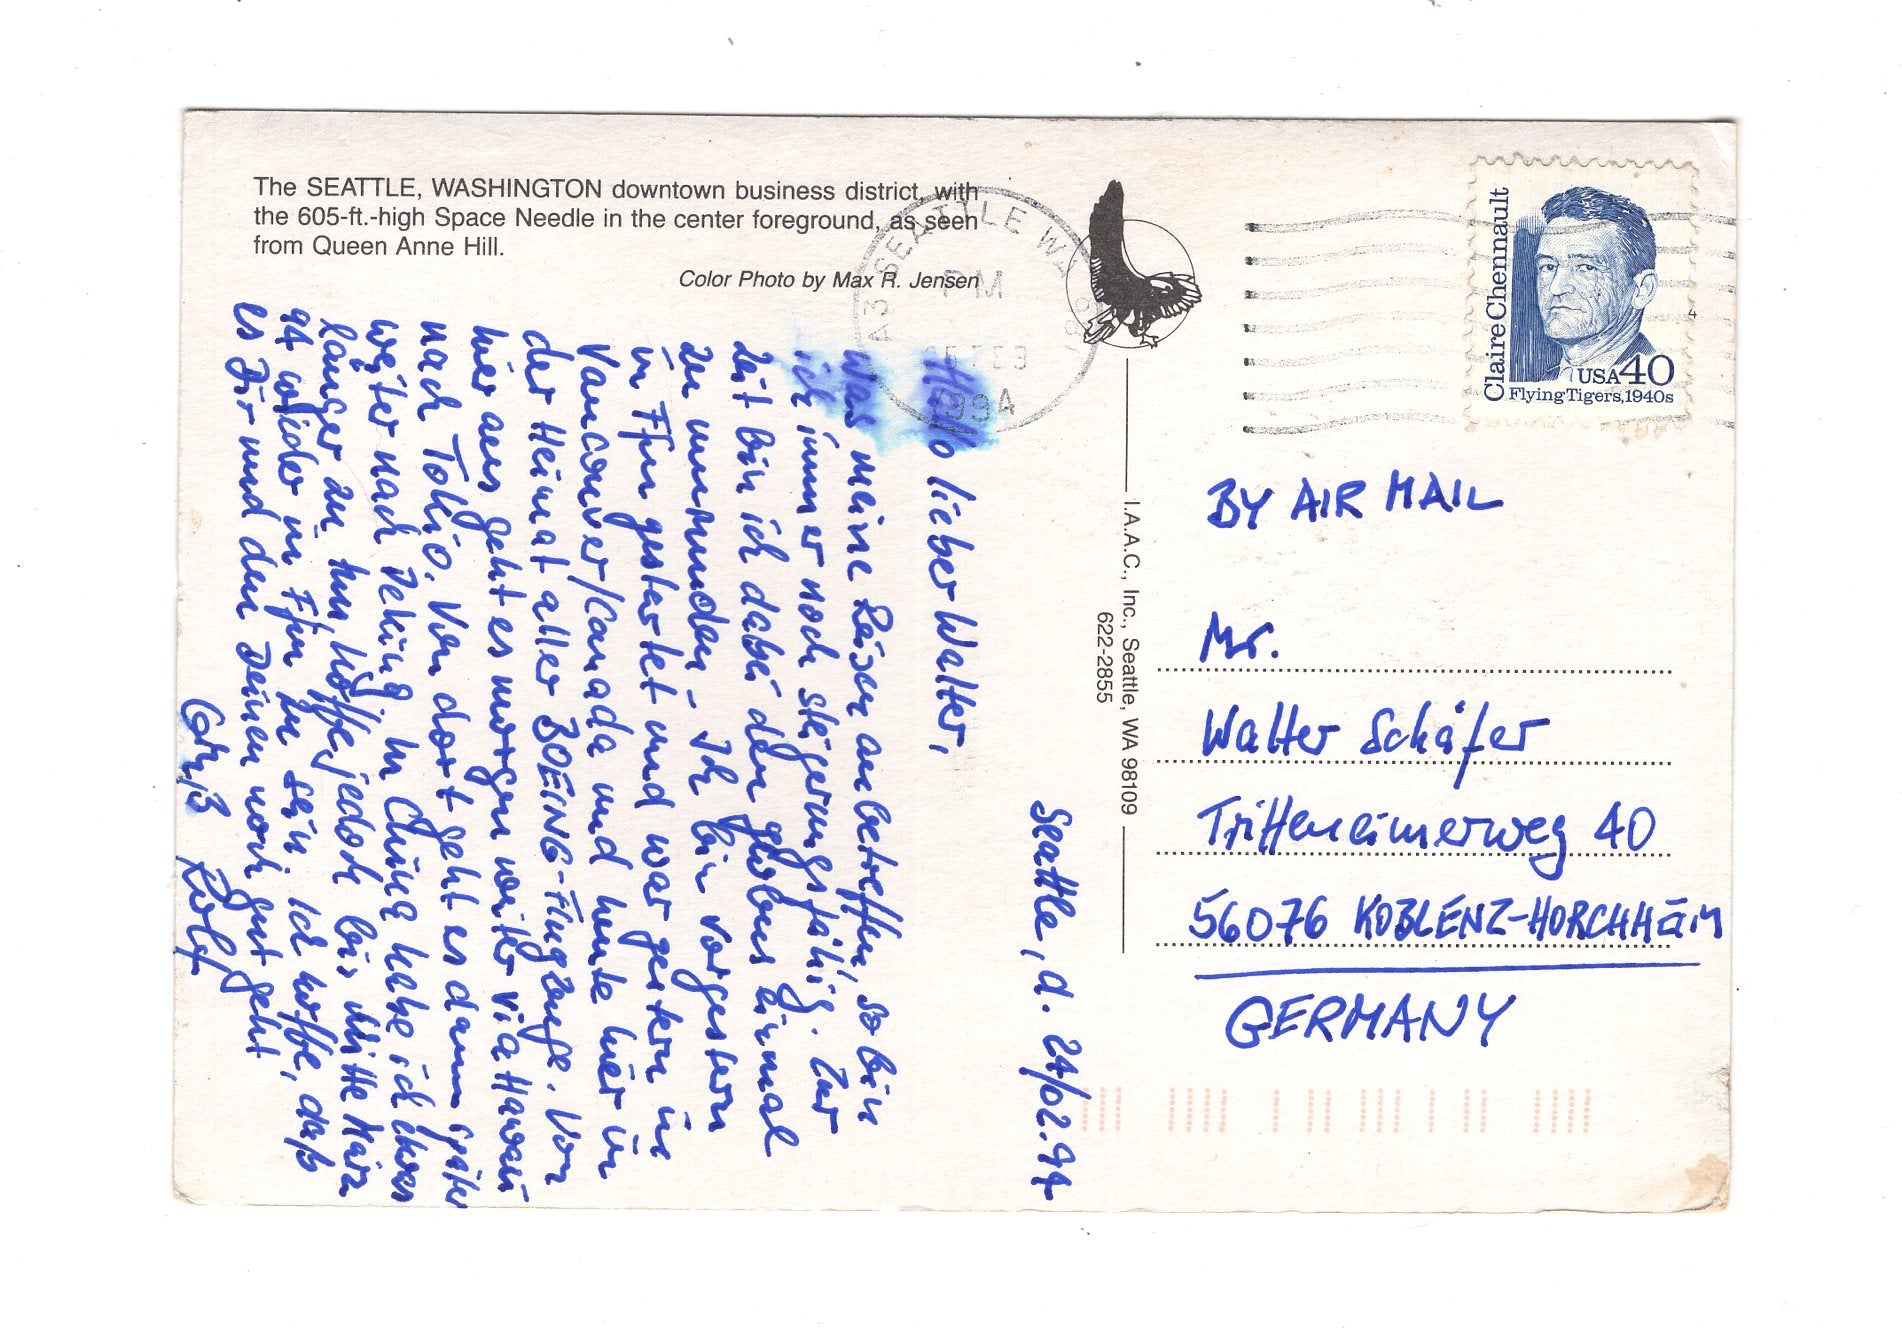 The SEATTLE, WASHINGTON downtown business district, with
the 605-ft.-high Space Needle in the center foreground, as seen
from Queen Anne Hill.
Color Photo by Max R. Jensen
SEATTLE WA
PM
FEB
1994
Claire Chennault
USA 40
Flying Tigers, 1940s
4
I.A.A.C., Inc., Seattle, WA 98109
622-2855
BY AIR MAIL
Mr.
Walter Schäfer
Trittenheimerweg 40
56076 KOBLENZ-HORCHHEIM
GERMANY
Seattle, d. 24/02.94
Hallo lieber Walter,
was meine Reisen anbetreffen, so bin
ich immer noch steigerungsfähig. Zur
Zeit bin ich dabei den globus einmal
zu umrunden - Ich bin vorgestern
in Ffm gestartet und war gestern in
Vancouver/Canada und heute hier in
der Heimat aller BOEING-Flugzeuge. Von
hier aus geht es morgen weiter via Hawaii
nach Tokio. Von dort geht es dann später
weiter nach Peking. In China habe ich etwas
länger zu tun hoffe jedoch bis Mitte März
94 wieder in Ffm zu sein. Ich hoffe, daß
es Dir und den Deinen noch gut geht
Gruß Rolf